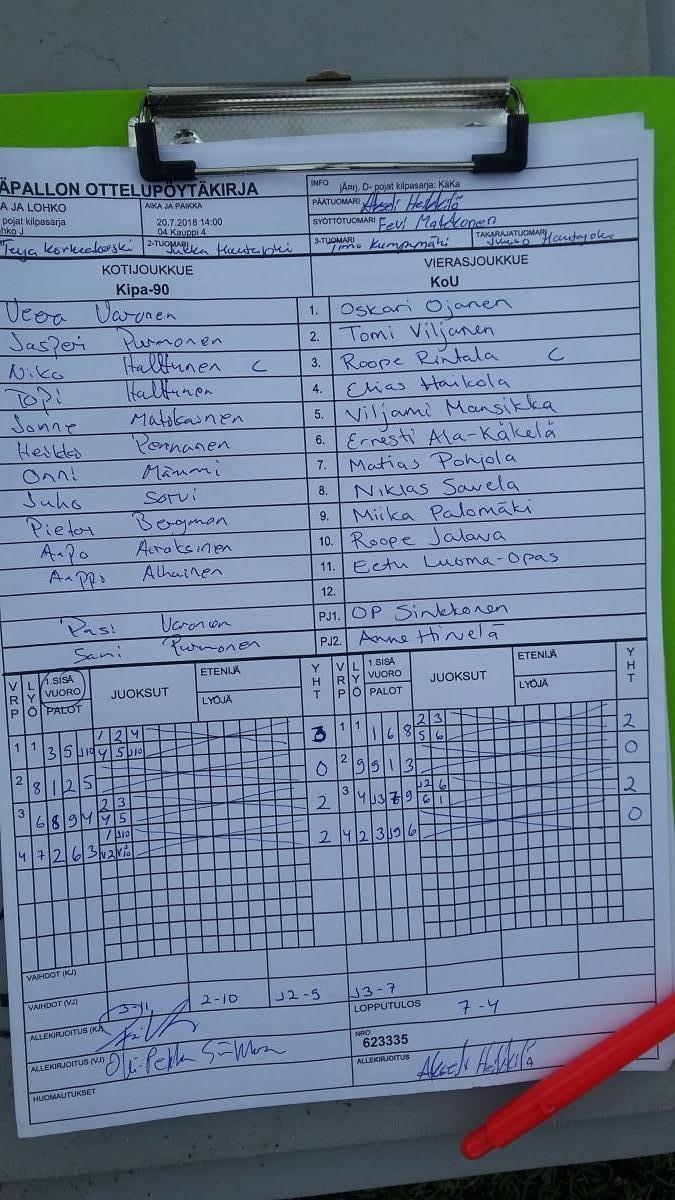 ÄPALLON OTTELUPÖYTÄKIRJA
INFO jÄ¤rj. D- pojat kilpasarja: KäKa
A JA LOHKO AIKA JA PAIKKA PÄÄTUOMARI Akseli Heikkilä
pojat kilpasarja 20.7.2018 14:00 SYÖTTÖTUOMARI Eevi Matkkonen
hko J 04 Kauppi 4
2-TUOMARI Jukka Hautajoki 3-TUOMARI Timo Kumpumäki TAKARAJATUOMARI Hautajoki
KOTIJOUKKUE VIERASJOUKKUE
Kipa-90 KoU
Veera Varonen 1. Oskari Ojanen
Jasperi Purmonen 2. Tomi Viljanen
Niko Halttunen C 3. Roope Rintala C
Topi Halttunen 4. Elias Haikola
Sonne Matokainen 5. Viljami Mansikka
Heikko Pennanen 6. Ernesti Ala-Käkelä
Onni Mämmi 7. Matias Pohjola
Juho Sorvi 8. Niklas Savela
Pieter Bergman 9. Miika Palomäki
Aapo Airaksinen 10. Roope Jalava
Aappo Alhainen 11. Eetu Luoma-Opas
12.
Pasi Varonen PJ1. OP Sinkkonen
Sami Purmonen PJ2. Anne Hirvelä
VRP LYÖ 1.SISÄ VUORO PALOT JUOKSUT ETENIJÄ LYÖJÄ YHT VRP LYÖ 1.SISÄ VUORO PALOT JUOKSUT ETENIJÄ LYÖJÄ YHT
1 1 3 5 J10 1 2 4 3 1 1 1 6 8 2 3 2
4 5 J10 5 6
2 8 1 2 5 0 2 9 9 1 3 0
3 6 8 9 4 2 3 2 3 4 J3 7 9 J2 6 2
4 5 6 1
4 7 2 6 3 1 J10 2 4 2 3 J9 6 0
V2 V10
VAIHDOT (KJ)
VAIHDOT (VJ) 3-11 2-10 J2-5 J3-7
ALLEKIRJOITUS (KJ) LOPPUTULOS 7-4
ALLEKIRJOITUS (VJ) Olli-Pekka Sinkkonen NRO 623335
ALLEKIRJOITUS Akseli Heikkilä
HUOMAUTUKSET